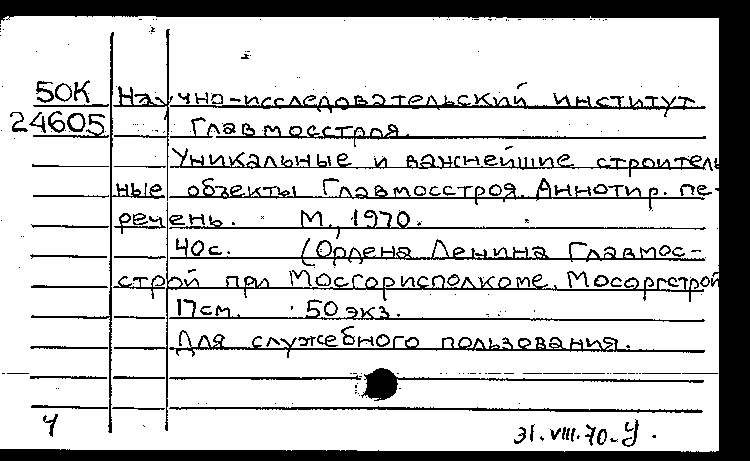 50К Научно-исследовательский институт
24605 Главмосстроя.
Уникальные и важнейшие строитель
ные объекты Главмосстроя. Аннотир. пе-
речень. М., 1970.
40с. (Ордена Ленина Главмос-
строй при Мосгорисполкоме. Мосоргстрой
17см. 50 экз.
Для служебного пользования.
Ч 31.VIII.70-У.